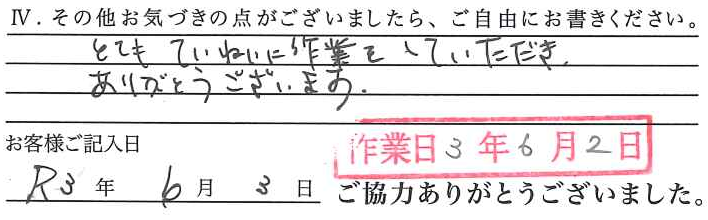 Ⅳ. その他お気づきの点がございましたら、ご自由にお書きください。
とても ていねいに作業をしていただき、
ありがとうございます。
お客様ご記入日
作業日 3 年 6 月 2 日
R3 年 6 月 3 日 ご協力ありがとうございました。